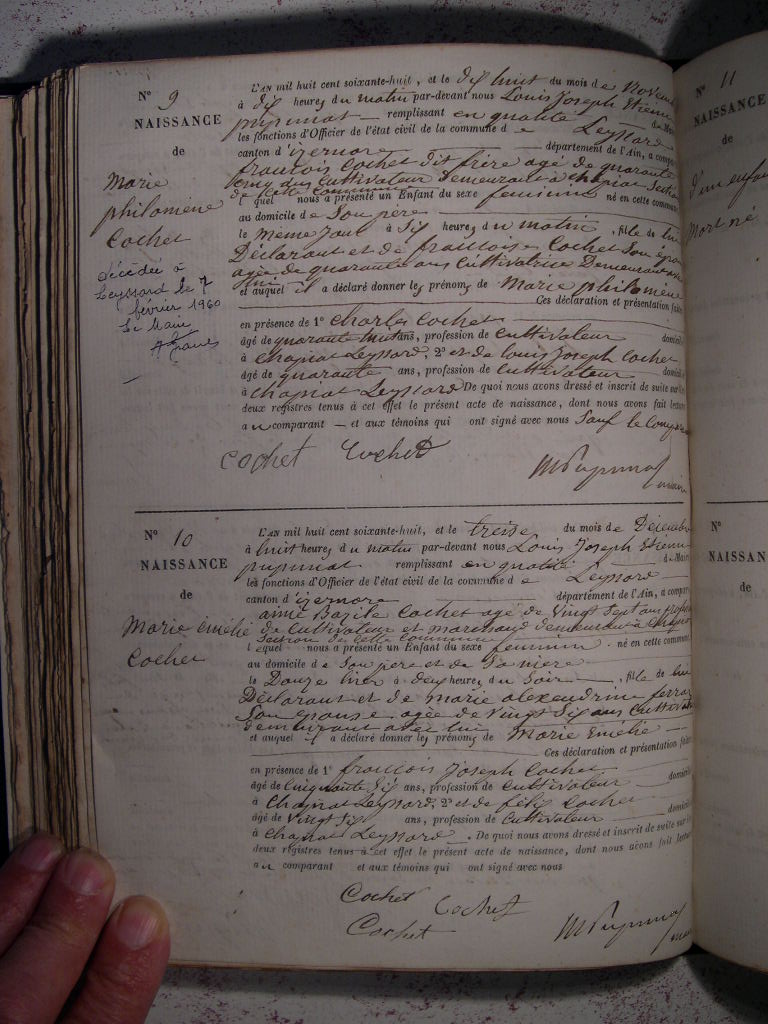 N° 9
NAISSANCE
de
Marie
philomène
Cochet
décédée à
Leyssard le 7
février 1960
Le Maire
L'AN mil huit cent soixante-huit, et le dix huit du mois de Novem
à dix heures du matin par-devant nous Louis Joseph Etienne
pupunat remplissant en qualité de Mai
les fonctions d'Officier de l'état civil de la commune de Leyssard
canton d'izernore département de l'Ain, a compa
francois Cochet dit frère agé de quarante
cinq ans Cultivateur Demeurant à chapiat Section
de cette Commune
lequel nous a présenté un Enfant du sexe feminin né en cette commune
au domicile de Son père
le même jour à Six heures du matin, fille de lui
Déclarant et de francoise Cochet Son épou
agée de quarante ans Cultivatrice Demeurant avec
lui
et auquel il a déclaré donner les prénoms de Marie philomène
Ces déclaration et présentation faites
en présence de 1° Charles Cochet
âgé de quarante huit ans, profession de Cultivateur domicil
à Chapiat Leyssard, 2° et de Louis Joseph Cochet
âgé de quarante ans, profession de Cultivateur domicil
à Chapiat Leyssard De quoi nous avons dressé et inscrit de suite sur les
deux registres tenus à cet effet le présent acte de naissance, dont nous avons fait lecture
au comparant et aux témoins qui ont signé avec nous Sauf le Comparant
Cochet Cochet
Pupunat maire
N° 10
NAISSANCE
de
Marie émélie
Cochet
L'AN mil huit cent soixante-huit, et le treize du mois de Décembre
à huit heures du matin par-devant nous Louis Joseph Etienne
pupunat remplissant en qualité de Mair
les fonctions d'Officier de l'état civil de la commune de Leyssard
canton d'izernore département de l'Ain, a comparu
aimé Bazile Cochet agé de vingt Sept ans profes
de Cultivateur et marchand demeurant à Chapiat
Section de Cette Commune
lequel nous a présenté un Enfant du sexe feminin né en cette commune
au domicile de Son père et de Sa mère
le Douze hier à deux heures du Soir, fille de lui
Déclarant et de Marie alexendrine ferra
Son épouse agée de vingt Six ans Cultivat
demeurant avec lui
et auquel il a déclaré donner les prénoms de Marie Emélie
Ces déclaration et présentation faites
en présence de 1° francois Joseph Cochet
âgé de Cinquante Six ans, profession de Cultivateur domicil
à Chapiat Leyssard, 2° et de félix Cochet
âgé de vingt Six ans, profession de Cultivateur domicil
à Chapiat Leyssard. De quoi nous avons dressé et inscrit de suite sur les
deux registres tenus à cet effet le présent acte de naissance, dont nous avons fait lecture
au comparant et aux témoins qui ont signé avec nous
Cochet Cochet
Cochet
Pupunat maire
N° 11
NAISSANCE
de
d'un enfan
Mort né
N°
NAISSAN
de